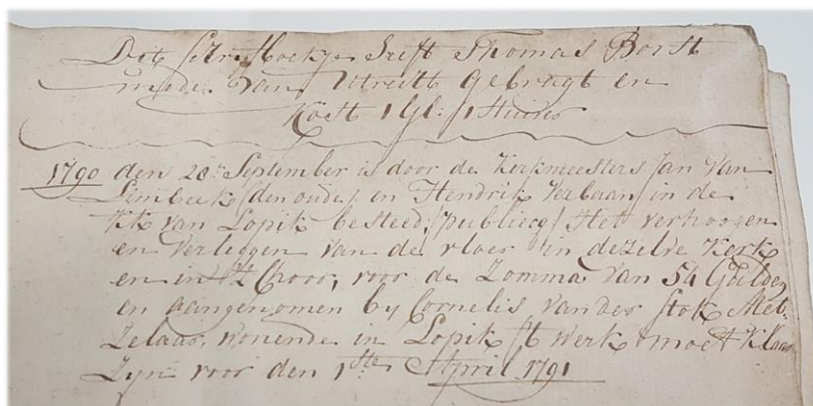 Dit schrifboekje heeft Thomas Borst
mede van Utrecht gebragt en
kost 1 Gl: 1 Stuiver
1790 den 20e September is door de Kerkmeesters Jan van
Limbeek (den oude) en Hendrik Verbaan in de
kk van Lopik besteed /publiecq/ Het verhoogen
en verleggen van de vloer in dezelve kerk
en in 't Choor, voor de Zomma van 54 Gulden
en aangenomen by Cornelis van der Stok Met-
zelaar, wonende in Lopik 't werk moet klaar
zyn voor den 1ste April 1791